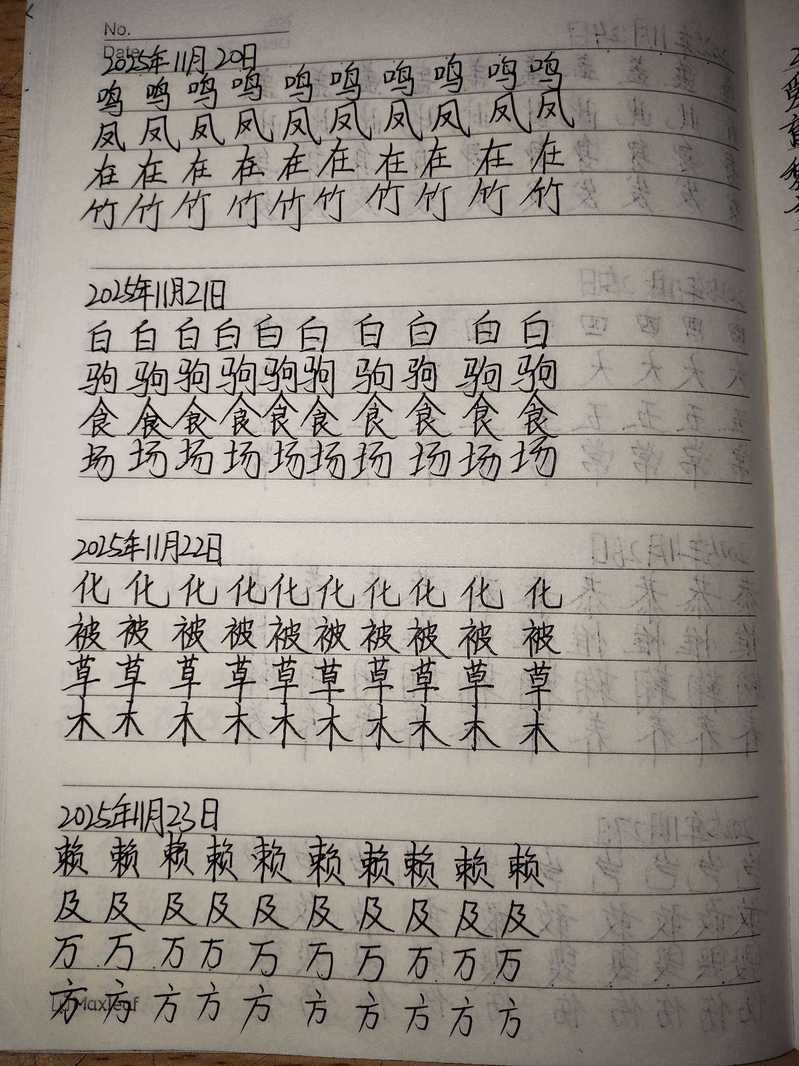 No.
Date
2025年11月20日
鸣 鸣 鸣 鸣 鸣 鸣 鸣 鸣 鸣 鸣
凤 凤 凤 凤 凤 凤 凤 凤 凤 凤
在 在 在 在 在 在 在 在 在 在
竹 竹 竹 竹 竹 竹 竹 竹 竹 竹
2025年11月21日
白 白 白 白 白 白 白 白 白 白
驹 驹 驹 驹 驹 驹 驹 驹 驹 驹
食 食 食 食 食 食 食 食 食 食
场 场 场 场 场 场 场 场 场 场
2025年11月22日
化 化 化 化 化 化 化 化 化 化
被 被 被 被 被 被 被 被 被 被
草 草 草 草 草 草 草 草 草 草
木 木 木 木 木 木 木 木 木 木
2025年11月23日
赖 赖 赖 赖 赖 赖 赖 赖 赖 赖
及 及 及 及 及 及 及 及 及 及
万 万 万 万 万 万 万 万 万 万
方 方 方 方 方 方 方 方 方 方
Maxleaf